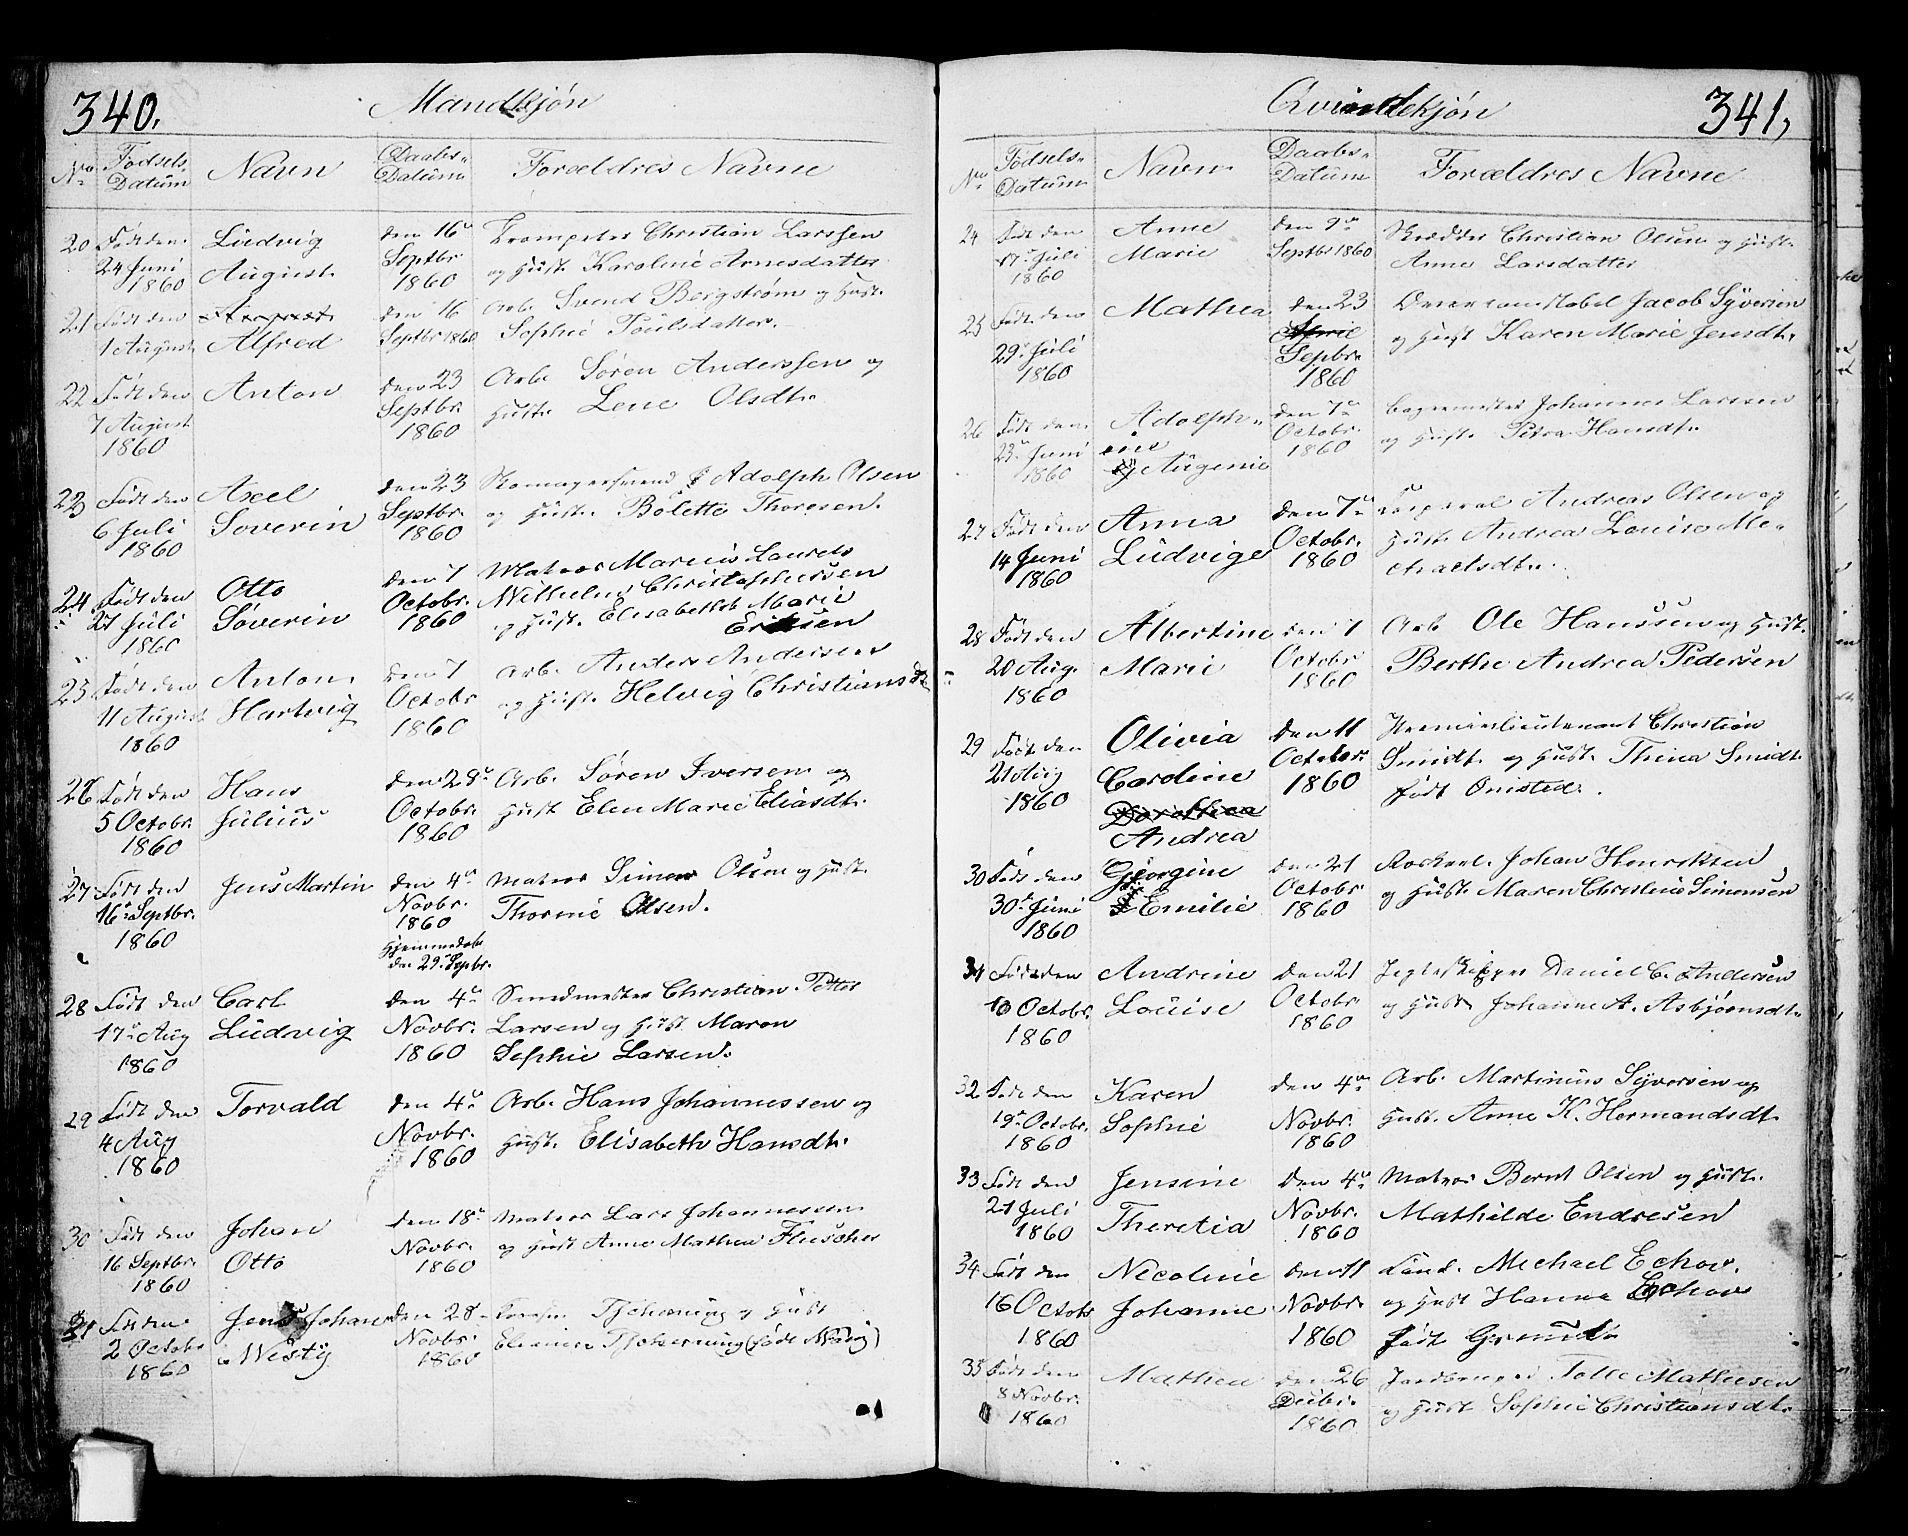 340.
Mandkjøn
No Fødsels Datum Navn Daabs- Datum Forældres Navne
20 Født den Ludvig den 16de Trompeter Christian Larssen
24 Juni August Septbr og Hust. Karoline Arnesdatter
1860 1860
21 Født den August den 16 Arb. Svend Bergstrøm og Hust.
1 August Alfred Septbr 1860 Sophie Poulsdatter.
22 Født den Anton den 23 Arb. Søren Anderssen og
7 August Septbr. Hust. Lene Olsdt.
1860 1860
23 Født den Axel den 23 Skomagersvend Adolph Olsen
6 Juli Soverin Septbr. og Hust. Bolette Thoresen.
1860 1860
24 Født den Otto den 7 Matros Marcus Laurets
27 Juli Søverin Octobr. Wilhelm Christophersen
1860 1860 og Hust. Elisabeth Marie
Eriksen
25 Født den Anton den 7 Arb. Anders Andersen
11 August Hartvig Octobr og Hust. Helvig Christiansdt.
1860 1860
26 Født den Hans den 28de Arb. Søren Iversen og
5 Octobr. Julius Octobr. Hust Elen Marie Eliasdt.
1860 1860
27 Født den Jens Martin den 4de Matros Simen Olsen og Hust.
16 Septbr. Novbr. Thorine Olsen.
1860 1860
Hjemmedøbt
den 29 Septbr.
28 Født den Carl den 4de Smedmester Christian Petter
17de Aug Ludvig Novbr. Larsen og Hust. Maren
1860 1860 Sophie Larsen.
29 Født den Torvald den 4de Arb. Hans Johannessen og
4 Aug Novbr. Hust. Elisabeth Hansdt.
1860 1860
30 Født den Johan den 18de Matros Lars Johannessen
16 Septbr. Otto Novbr. og Hust Anne Mathea
1860 1860
31 Født den Jens Johan den 28 Tjokerning og Hust
2 Octobr Westy Novbr. Eleonore Tjokerning (født)
1860 1860
341,
Qvindekjøn
No Fødsels- Datum Navn Daabs- Datum Forældres Navne
24 Født den Anne den 9de Skrædder Christian Olsen og Hust.
17 Juli Marie Septbr 1860 Anne Larsdatter
1860
25 Født den Mathea den 23 Overconstabel Jacob Syversen
29 Juli April og Hust Karen Marie Jensdt.
1860 Septbr.
1860
26 Født den Adolph- den 7de Bagermester Johannes Larssen
23 Juni ine Octobr. og Hust. Petra Hansdt.
1860 og Augenie 1860
27 Født den Anna den 7de Corporal Andreas Olsen og
14 Juni Ludvige Octobr. Hust. Andrea Louise Me-
1860 1860 chaelsdt.
28 Født den Albertine den 7 Arb Ole Hanssen og Hust.
20 Aug. Marie Octobr Berthe Andrea Pedersen
1860 1860
29 Født den Olivia den 11 Premierlieutenant Christian
21 Aug Caroline October Smidt og Hust. Thina Smidt
1860 Dorothea 1860 født Onisted.
Andrea
30 Født den Gjeorgine den 21 Johan Henriksen
30 Juni Emilie Octobr og Hust. Maren Christine Simensen
1860 1860
31 Født den Andrine den 21 Jagtskipper Daniel C. Andersen
10 Octobr. Louise Octobr og Hust Johanne A. Asbjørnsdt.
1860 1860
32 Født den Karen den 4de Arb. Martinus Syversen og
19 Octobr. Sophie Novbr. Hust. Anne K. Hermandsdt.
1860 1860
33 Født den Jensine den 4de Matros Bernt Olsen og Hust.
21 Juli Theretia Novbr. Mathilde Endresen
1860 1860
34 Født den Nicoline den 11 Michael Echow.
16 Octobr Johanne Novbr. og Hust Hanna Echow
1860 1860 født
35 Født den Mathea den 26 Tolle Mathiesen
8 Novbr. Decbr. og Hust Sophie Christiansdt.
1860 1860